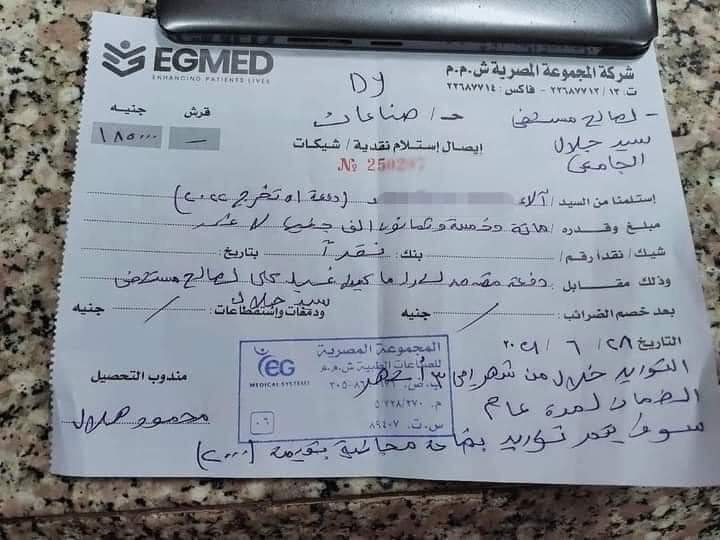 EGMED
ENHANCING PATIENTS LIVES
شركة المجموعة المصرية ش.م.م
ت: ٢٢٦٨٧٧١٢/١٣ - فاكس: ٢٢٦٨٧٧١٤
جنيه قرش
١٨٥٠٠٠ —
د/ صناعات
لصالح مستشفى
سيد جلال
الجامعى
إيصال إستلام نقدية / شيكات
№ 250297
إستلمنا من السيد / آلاء (دفعة ٥١ تخرج ٢٠٢٢)
مبلغ وقدره / مائة وخمسة وثمانون الف جنيها لا غير
شيك / نقدا رقم / بنك: نقدآ بتاريخ:
وذلك مقابل / دفعة مقدمه لشراء ماكينة غسيل كلى لصالح مستشفى
سيد جلال
بعد خصم الضرائب: / جنيه ودمغات واستقطاعات: / جنيه
التاريخ ٢٨ / ٦ / ٢٠٢١
مندوب التحصيل
محمود هلال
المجموعة المصرية
للصناعات الطبية ش.م.م
EG
MEDICAL SYSTEMS
م. ٥/٢٢٨/٢٧٠
س.ت. ٨٩٤٠٧
التوريد خلال من شهر إلى ٣ أشهر
الضمان لمدة عام
سوف يتم توريد بضاعة مجانية بقيمة (٢٠٠٠)